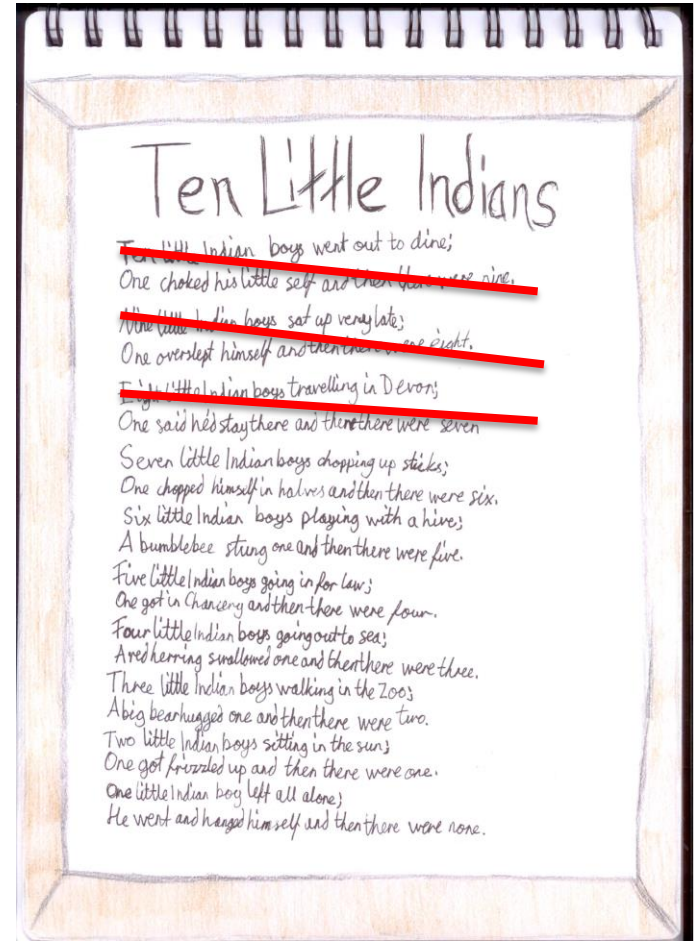 Ten Little Indians
Ten little Indian boys went out to dine;
One choked his little self and then there were nine.
Nine little Indian boys sat up very late;
One overslept himself and then there were eight.
Eight little Indian boys travelling in Devon;
One said he'd stay there and then there were seven
Seven little Indian boys chopping up sticks;
One chopped himself in halves and then there were six.
Six little Indian boys playing with a hive;
A bumblebee stung one and then there were five.
Five little Indian boys going in for law;
One got in Chancery and then there were four.
Four little Indian boys going out to sea;
A red herring swallowed one and then there were three.
Three little Indian boys walking in the Zoo;
A big bear hugged one and then there were two.
Two little Indian boys sitting in the sun;
One got frizzled up and then there were one.
One little Indian boy left all alone;
He went and hanged himself and then there were none.